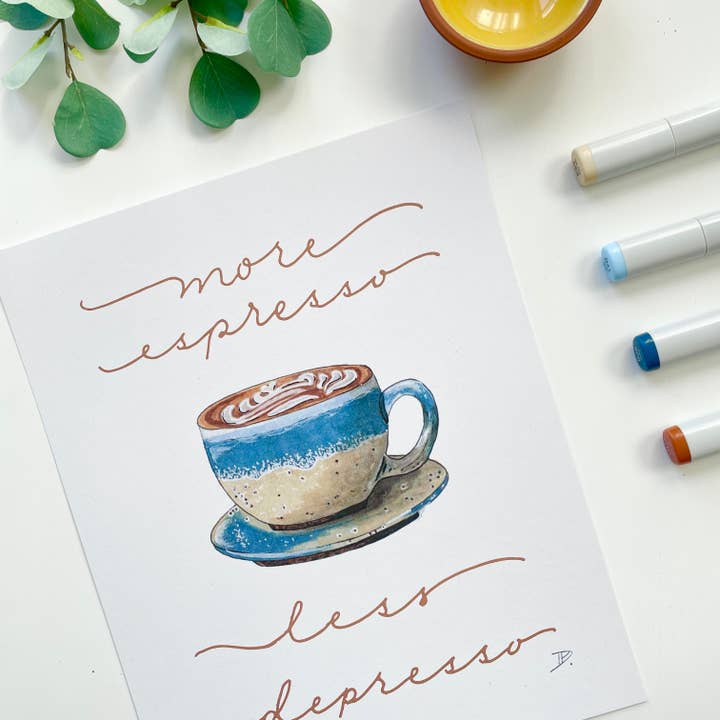 more
espresso
less
depresso